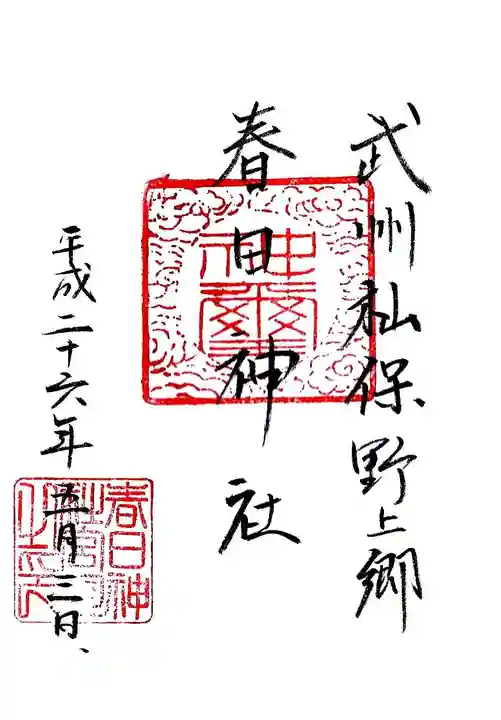 武州杣保野上郷
春日神社
平成二十六年五月三日、
神璽
春日神